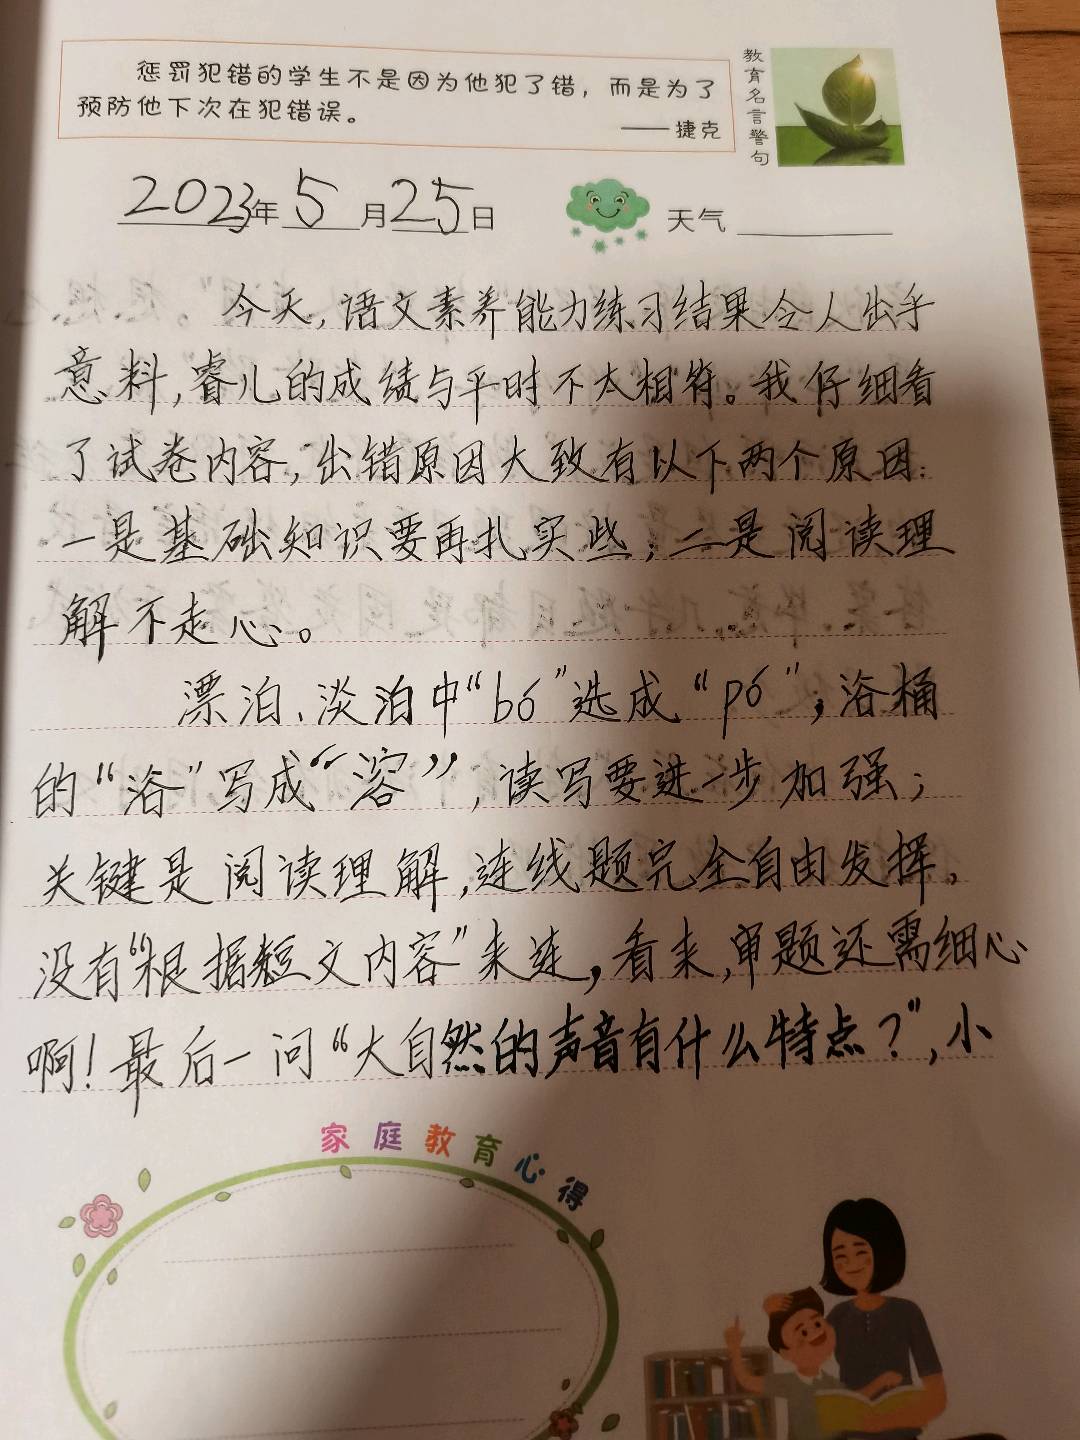 惩罚犯错的学生不是因为他犯了错，而是为了
预防他下次在犯错误。
——捷克
教育名言警句
2023年5月25日
天气
今天，语文素养能力练习结果令人出乎
意料，睿儿的成绩与平时不太相符。我仔细看
了试卷内容，出错原因大致有以下两个原因：
一是基础知识要再扎实些；二是阅读理
解不走心。
漂泊、淡泊中“bó”选成“pó”；浴桶
的“浴”写成“溶”，读写要进一步加强；
关键是阅读理解，连线题完全自由发挥，
没有“根据短文内容”来连，看来，审题还需细心
啊！最后一问“大自然的声音有什么特点？”，小
家庭教育心得